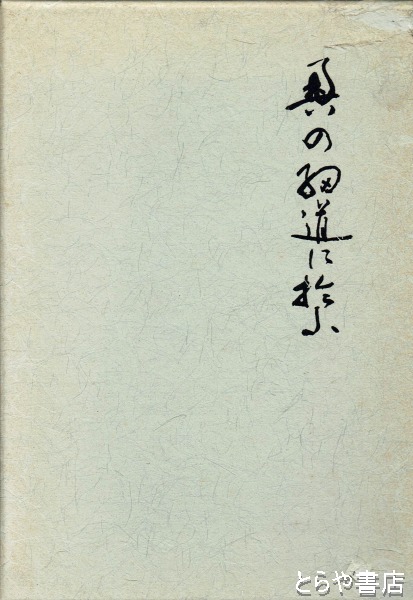 奥の細道に拾ふ
とらや書店